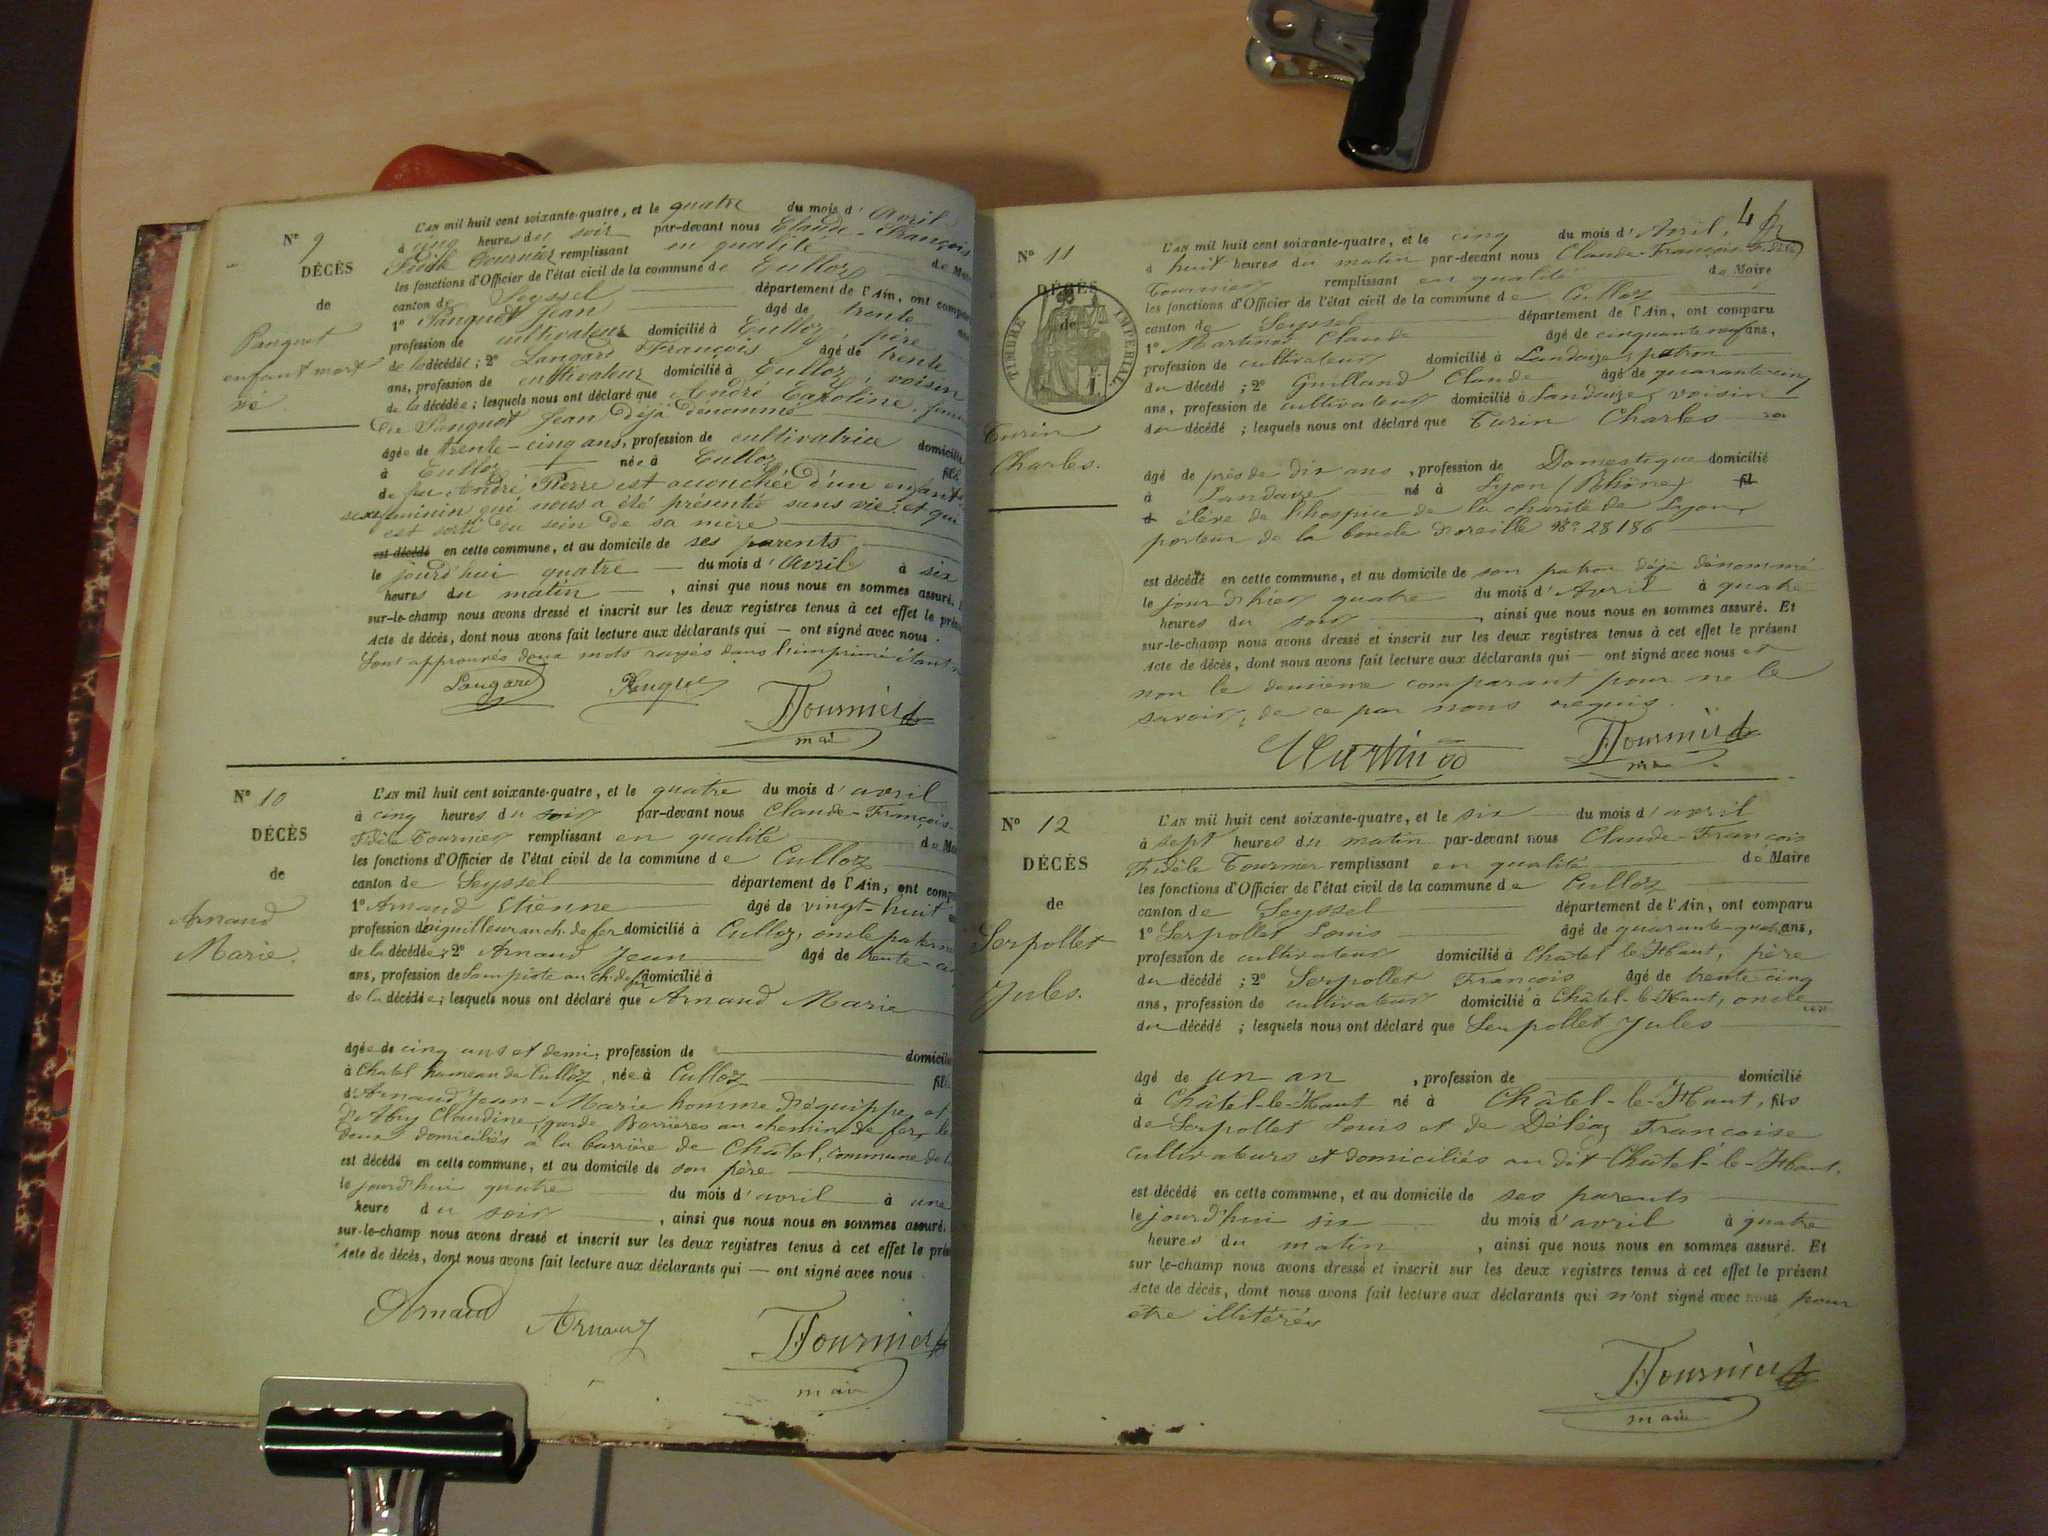 N° 9
DÉCÈS
de
Panguet
enfant mort
né.
L'AN mil huit cent soixante-quatre, et le quatre du mois d'avril
à cinq heures du soir par-devant nous Claude-François
Fidèle Tournier remplissant en qualité de Ma
les fonctions d'Officier de l'état civil de la commune de Culloz
canton de Seyssel département de l'Ain, ont compa
1° Panguet Jean âgé de trente ans
profession de cultivateur domicilié à Culloz, père
de la décédée; 2° Langard François âgé de trente
ans, profession de cultivateur domicilié à Culloz, voisin
de la décédée; lesquels nous ont déclaré que André Caroline,
du Panguet Jean déjà dénommé
âgée de trente-cinq ans, profession de cultivatrice domicilié
à Culloz née à Culloz fille
de feu André Pierre est accouchée d'un enfant
sexe féminin qui nous a été présenté sans vie, et qui
est sorti du sein de sa mère
est décédé en cette commune, et au domicile de ses parents
le jourd'hui quatre du mois d'avril à six
heures du matin, ainsi que nous nous en sommes assuré.
sur-le-champ nous avons dressé et inscrit sur les deux registres tenus à cet effet le prés
Acte de décès, dont nous avons fait lecture aux déclarants qui — ont signé avec nous.
Sont approuvés deux mots rayés dans l'imprimé étant
Langard Panguet FTournier
maire
N° 10
DÉCÈS
de
Arnaud
Marie.
L'AN mil huit cent soixante-quatre, et le quatre du mois d'avril
à cinq heures du soir par-devant nous Claude-François-
Fidèle Tournier remplissant en qualité de Ma
les fonctions d'Officier de l'état civil de la commune de Culloz
canton de Seyssel département de l'Ain, ont comp
1° Arnaud Etienne âgé de vingt-huit
profession d'aiguilleur au ch. de fer domicilié à Culloz, oncle patern
de la décédée; 2° Arnaud Jean âgé de trente-
ans, profession de lampiste au ch. de fer domicilié à
de la décédée; lesquels nous ont déclaré que Arnaud Marie
âgée de cinq ans et demi, profession de domicilié
à Chatel hameau de Culloz, née à Culloz fille
d'Arnaud Jean-Marie homme d'équippe, et
d'Abry Claudine, garde Barrières au chemin de fer, les
deux domiciliés à la barrière de Châtel, commune de
est décédé en cette commune, et au domicile de son père
le jourd'hui quatre du mois d'avril à une
heure du soir, ainsi que nous nous en sommes assuré.
sur-le-champ nous avons dressé et inscrit sur les deux registres tenus à cet effet le prés
Acte de décès, dont nous avons fait lecture aux déclarants qui — ont signé avec nous.
Arnaud Arnaud FTournier
maire
4
N° 11
DÉCÈS
de
TIMBRE IMPÉRIAL
Turin
Charles.
L'AN mil huit cent soixante-quatre, et le cinq du mois d'Avril,
à huit heures du matin par-devant nous Claude-François-Fidèle
Tournier remplissant en qualité de Maire
les fonctions d'Officier de l'état civil de la commune de Culloz
canton de Seyssel département de l'Ain, ont comparu
1° Martinod Claude âgé de cinquante neuf ans,
profession de cultivateur domicilié à Landaize, patron
du décédé; 2° Guilland Claude âgé de quarante-cinq
ans, profession de cultivateur domicilié à Landaize, voisin
du décédé; lesquels nous ont déclaré que Turin Charles
âgé de près de dix ans, profession de Domestique domicilié
à Landaize né à Lyon (Rhône) fil
d élève de l'hospice de la charité de Lyon,
porteur de la boucle d'oreille N° 28186
est décédé en cette commune, et au domicile de son patron déjà dénommé
le jour d'hier quatre du mois d'Avril à quatre
heures du soir, ainsi que nous nous en sommes assuré. Et
sur-le-champ nous avons dressé et inscrit sur les deux registres tenus à cet effet le présent
Acte de décès, dont nous avons fait lecture aux déclarants qui — ont signé avec nous et
non le deuxième comparant pour ne le
savoir, de ce par nous requis.
Martinod FTournier
maire
N° 12
DÉCÈS
de
Serpollet
Jules.
L'AN mil huit cent soixante-quatre, et le six du mois d'avril
à sept heures du matin par-devant nous Claude-François
Fidèle Tournier remplissant en qualité de Maire
les fonctions d'Officier de l'état civil de la commune de Culloz
canton de Seyssel département de l'Ain, ont comparu
1° Serpollet Louis âgé de quarante-quatre ans,
profession de cultivateur domicilié à Châtel le-Haut, père
du décédé; 2° Serpollet François âgé de trente cinq
ans, profession de cultivateur domicilié à Châtel-le-Haut, oncle
du décédé; lesquels nous ont déclaré que Serpollet Jules
âgé de un an, profession de domicilié
à Châtel-le-Haut né à Châtel-le-Haut, fils
de Serpollet Louis et de Déléaz Françoise
cultivateurs et domiciliés au dit Châtel-le-Haut.
est décédé en cette commune, et au domicile de ses parents
le jourd'hui six du mois d'avril à quatre
heures du matin, ainsi que nous nous en sommes assuré. Et
sur le-champ nous avons dressé et inscrit sur les deux registres tenus à cet effet le présent
Acte de décès, dont nous avons fait lecture aux déclarants qui n'ont signé avec nous, pour
être illitérés
FTournier
maire